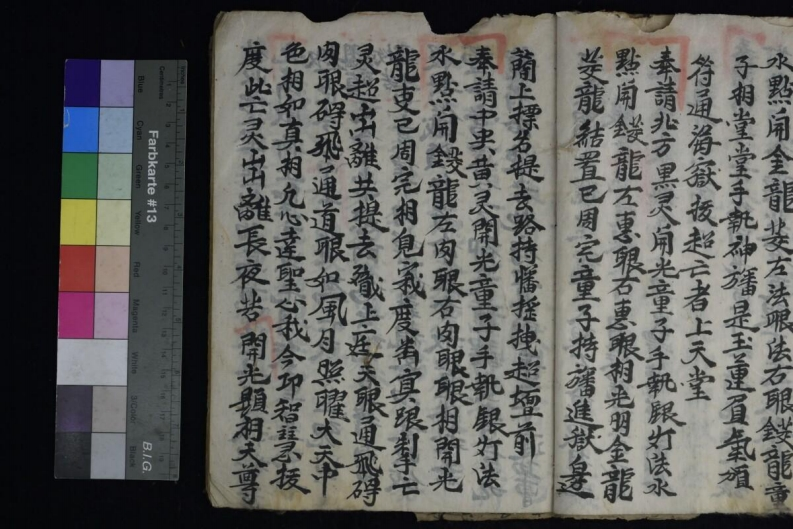 水點開金龍
左法眼法右眼鎫龍童
子相堂堂手執神旛是玉蓮眉氣頒
符通海嶽拔超亡者上天堂
奉請北方黑灵開光童子手執銀灯法水
點開鎫龍左惠眼右惠眼相光明金龍
龍結置已周完童子持旛進獄邊
蘭上摽名提去路持旛摇拽超壇前
奉請中央黄灵開光童子手執銀灯法
水點開鎫龍左肉眼右肉眼眼相開光
龍支已周完相見我度出寘眼到手亡
灵超出離共提去上莚天眼通飛碍
肉眼碍飛通道眼如風月照曜大天中
色相如真相允心達聖心我今卬智灵拔
度此亡灵出離長夜苦開光顯相天尊
Farbkarte #13
B.I.G.
Blue
Cyan
Green
Yellow
Red
Magenta
White
3/Color
Black